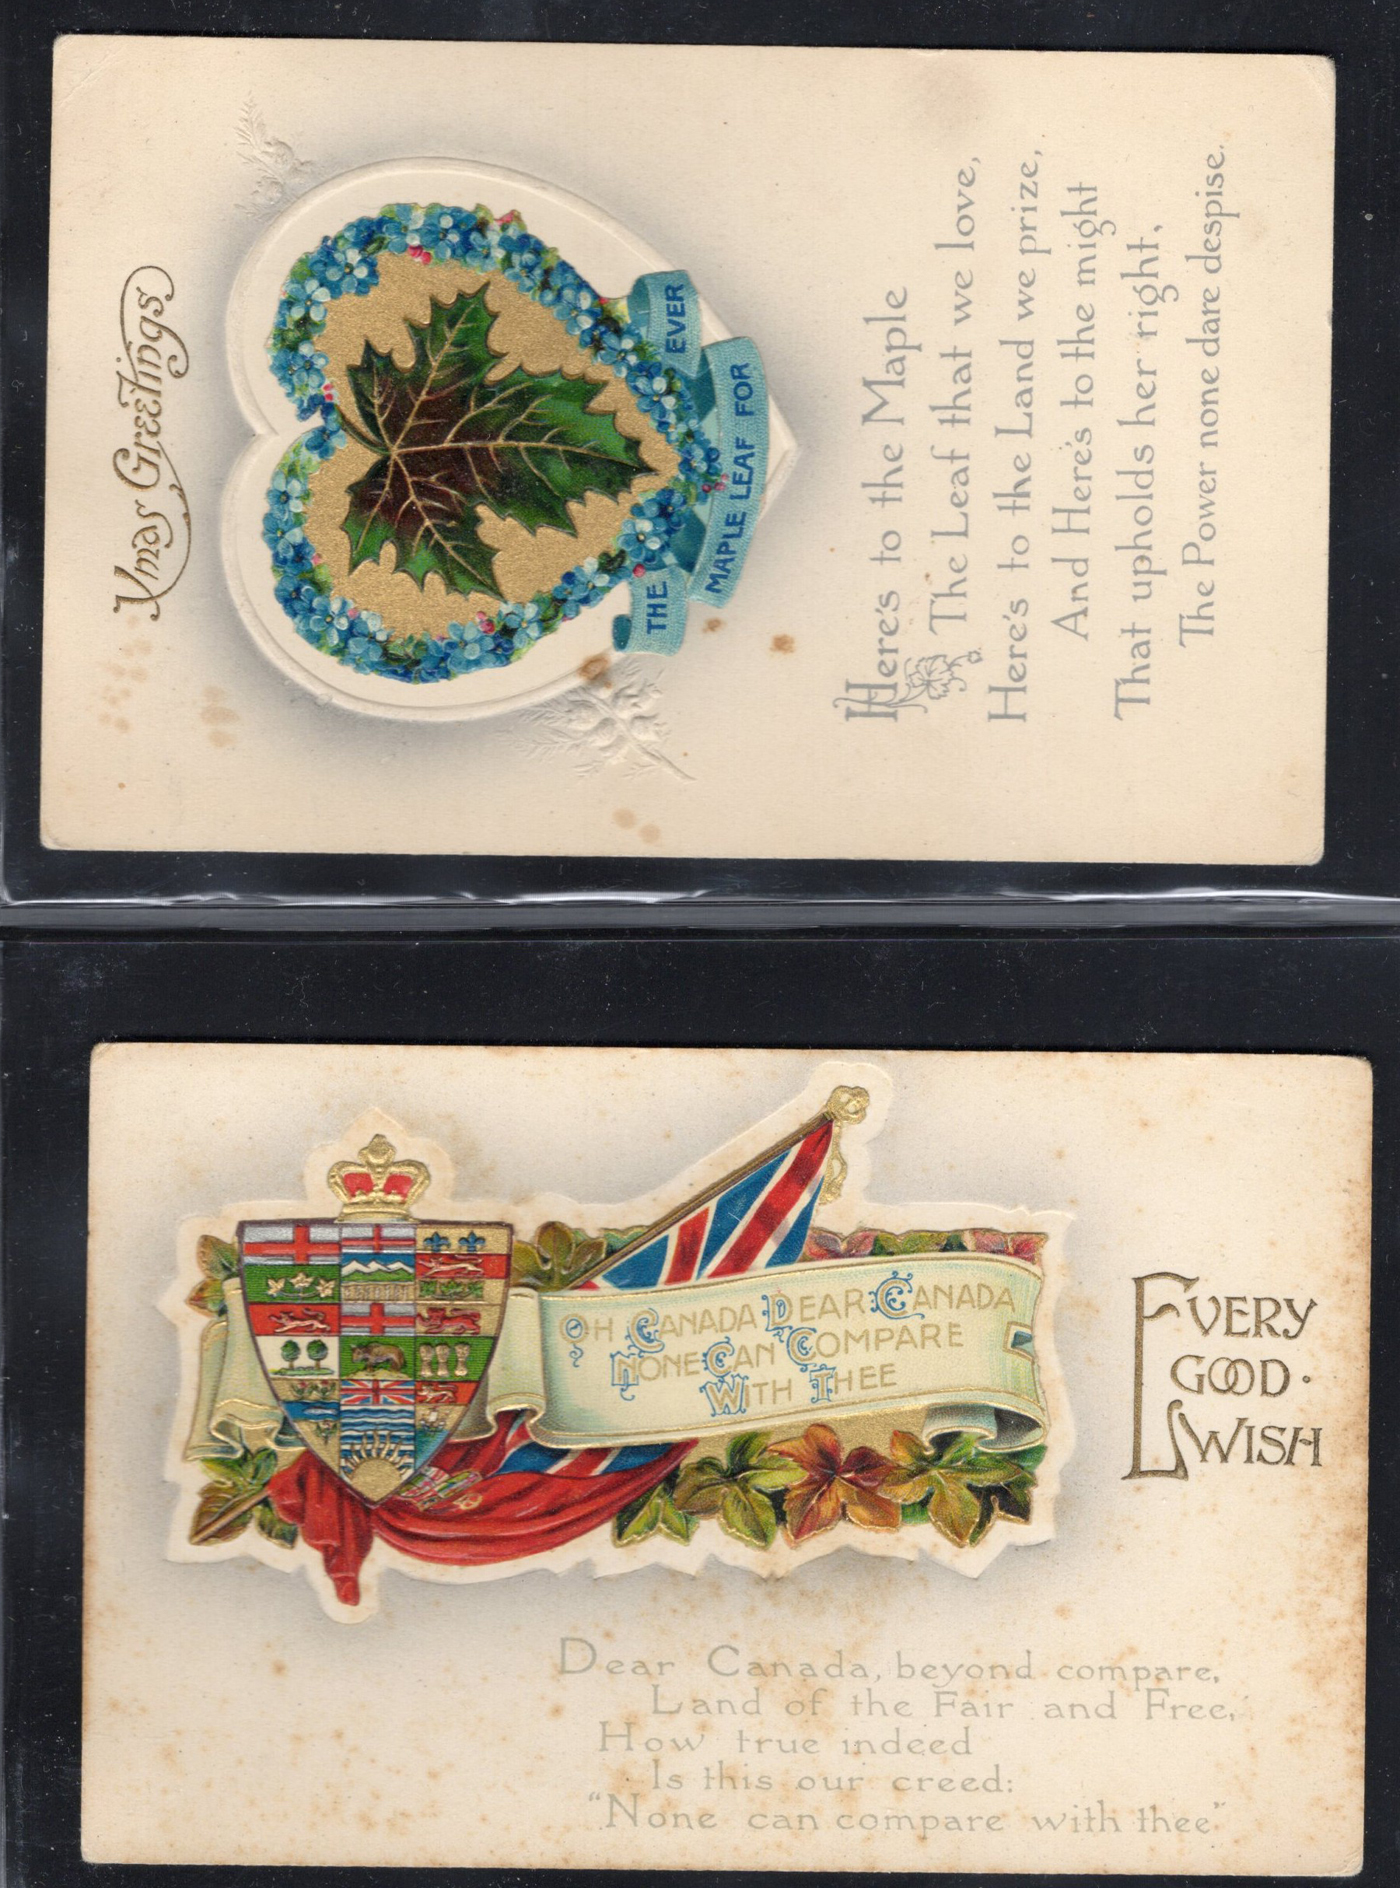 Xmas Greetings
THE
MAPLE LEAF FOR
EVER
Here's to the Maple
The Leaf that we love,
Here's to the Land we prize,
And Here's to the might
That upholds her right,
The Power none dare despise.
OH CANADA DEAR CANADA
NONE CAN COMPARE
WITH THEE
EVERY
GOOD.
WISH
Dear Canada, beyond compare,
Land of the Fair and Free,
How true indeed
Is this our creed:
"None can compare with thee"